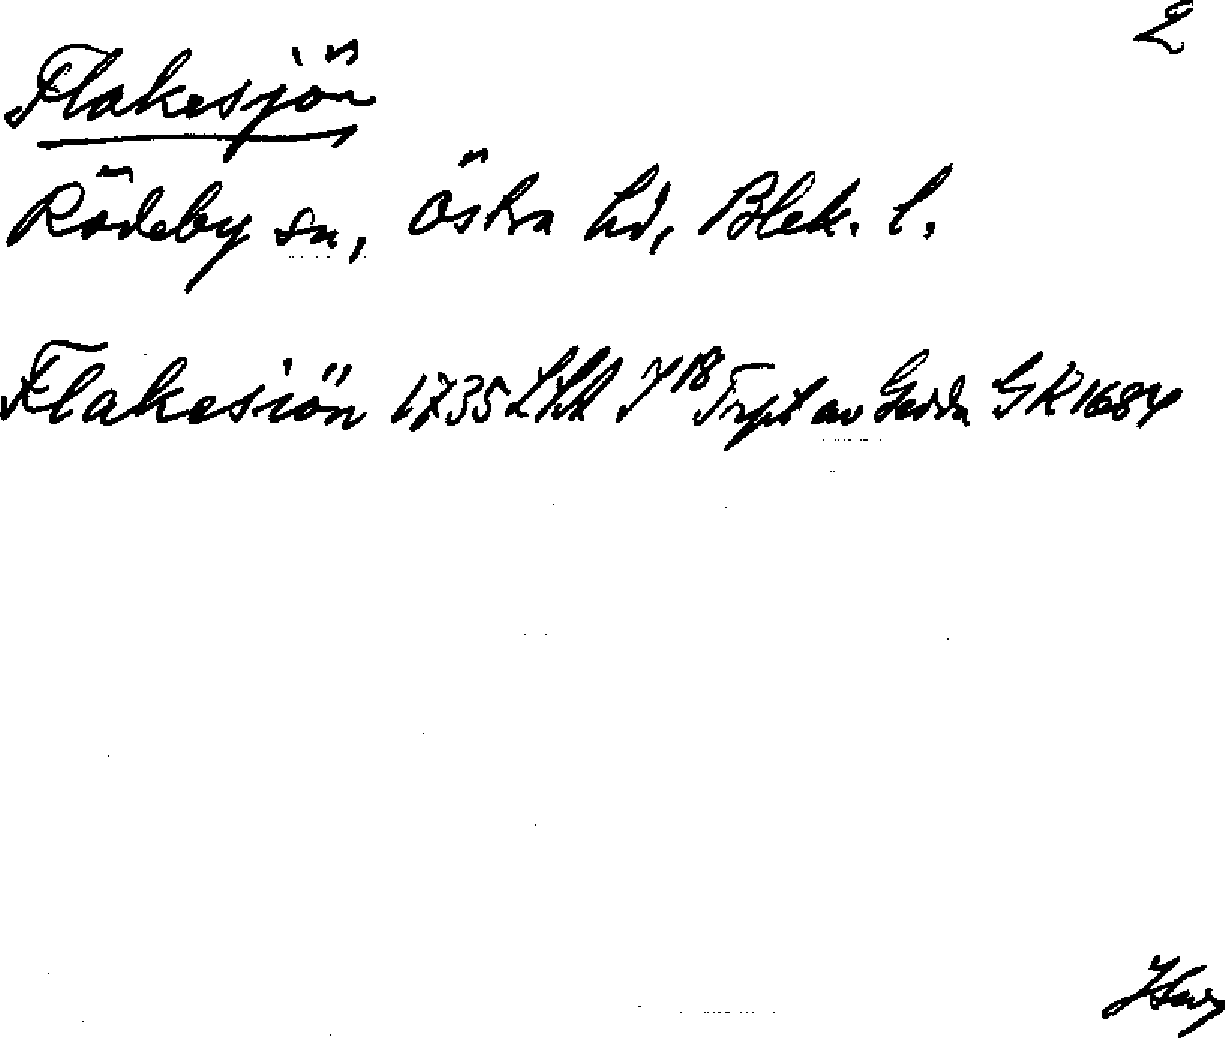 2
Flakesjön
Rödeby sn, Östra hd, Blek. l.
Flakesiön 1735 Y 18 av Gedda GK 1684